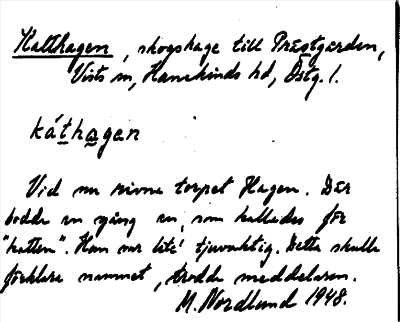 Katthagen, skogshage till Prestgården,
Vists sn, Hanekinds hd, Östg. l.
káthagen
Vid nu rivna torpet Hagen. Där
bodde en gång en, som kallades för
"katten". Han var lite' tjuvaktig. Detta skulle
förklara namnet, trodde meddelaren.
M. Nordlund 1948.